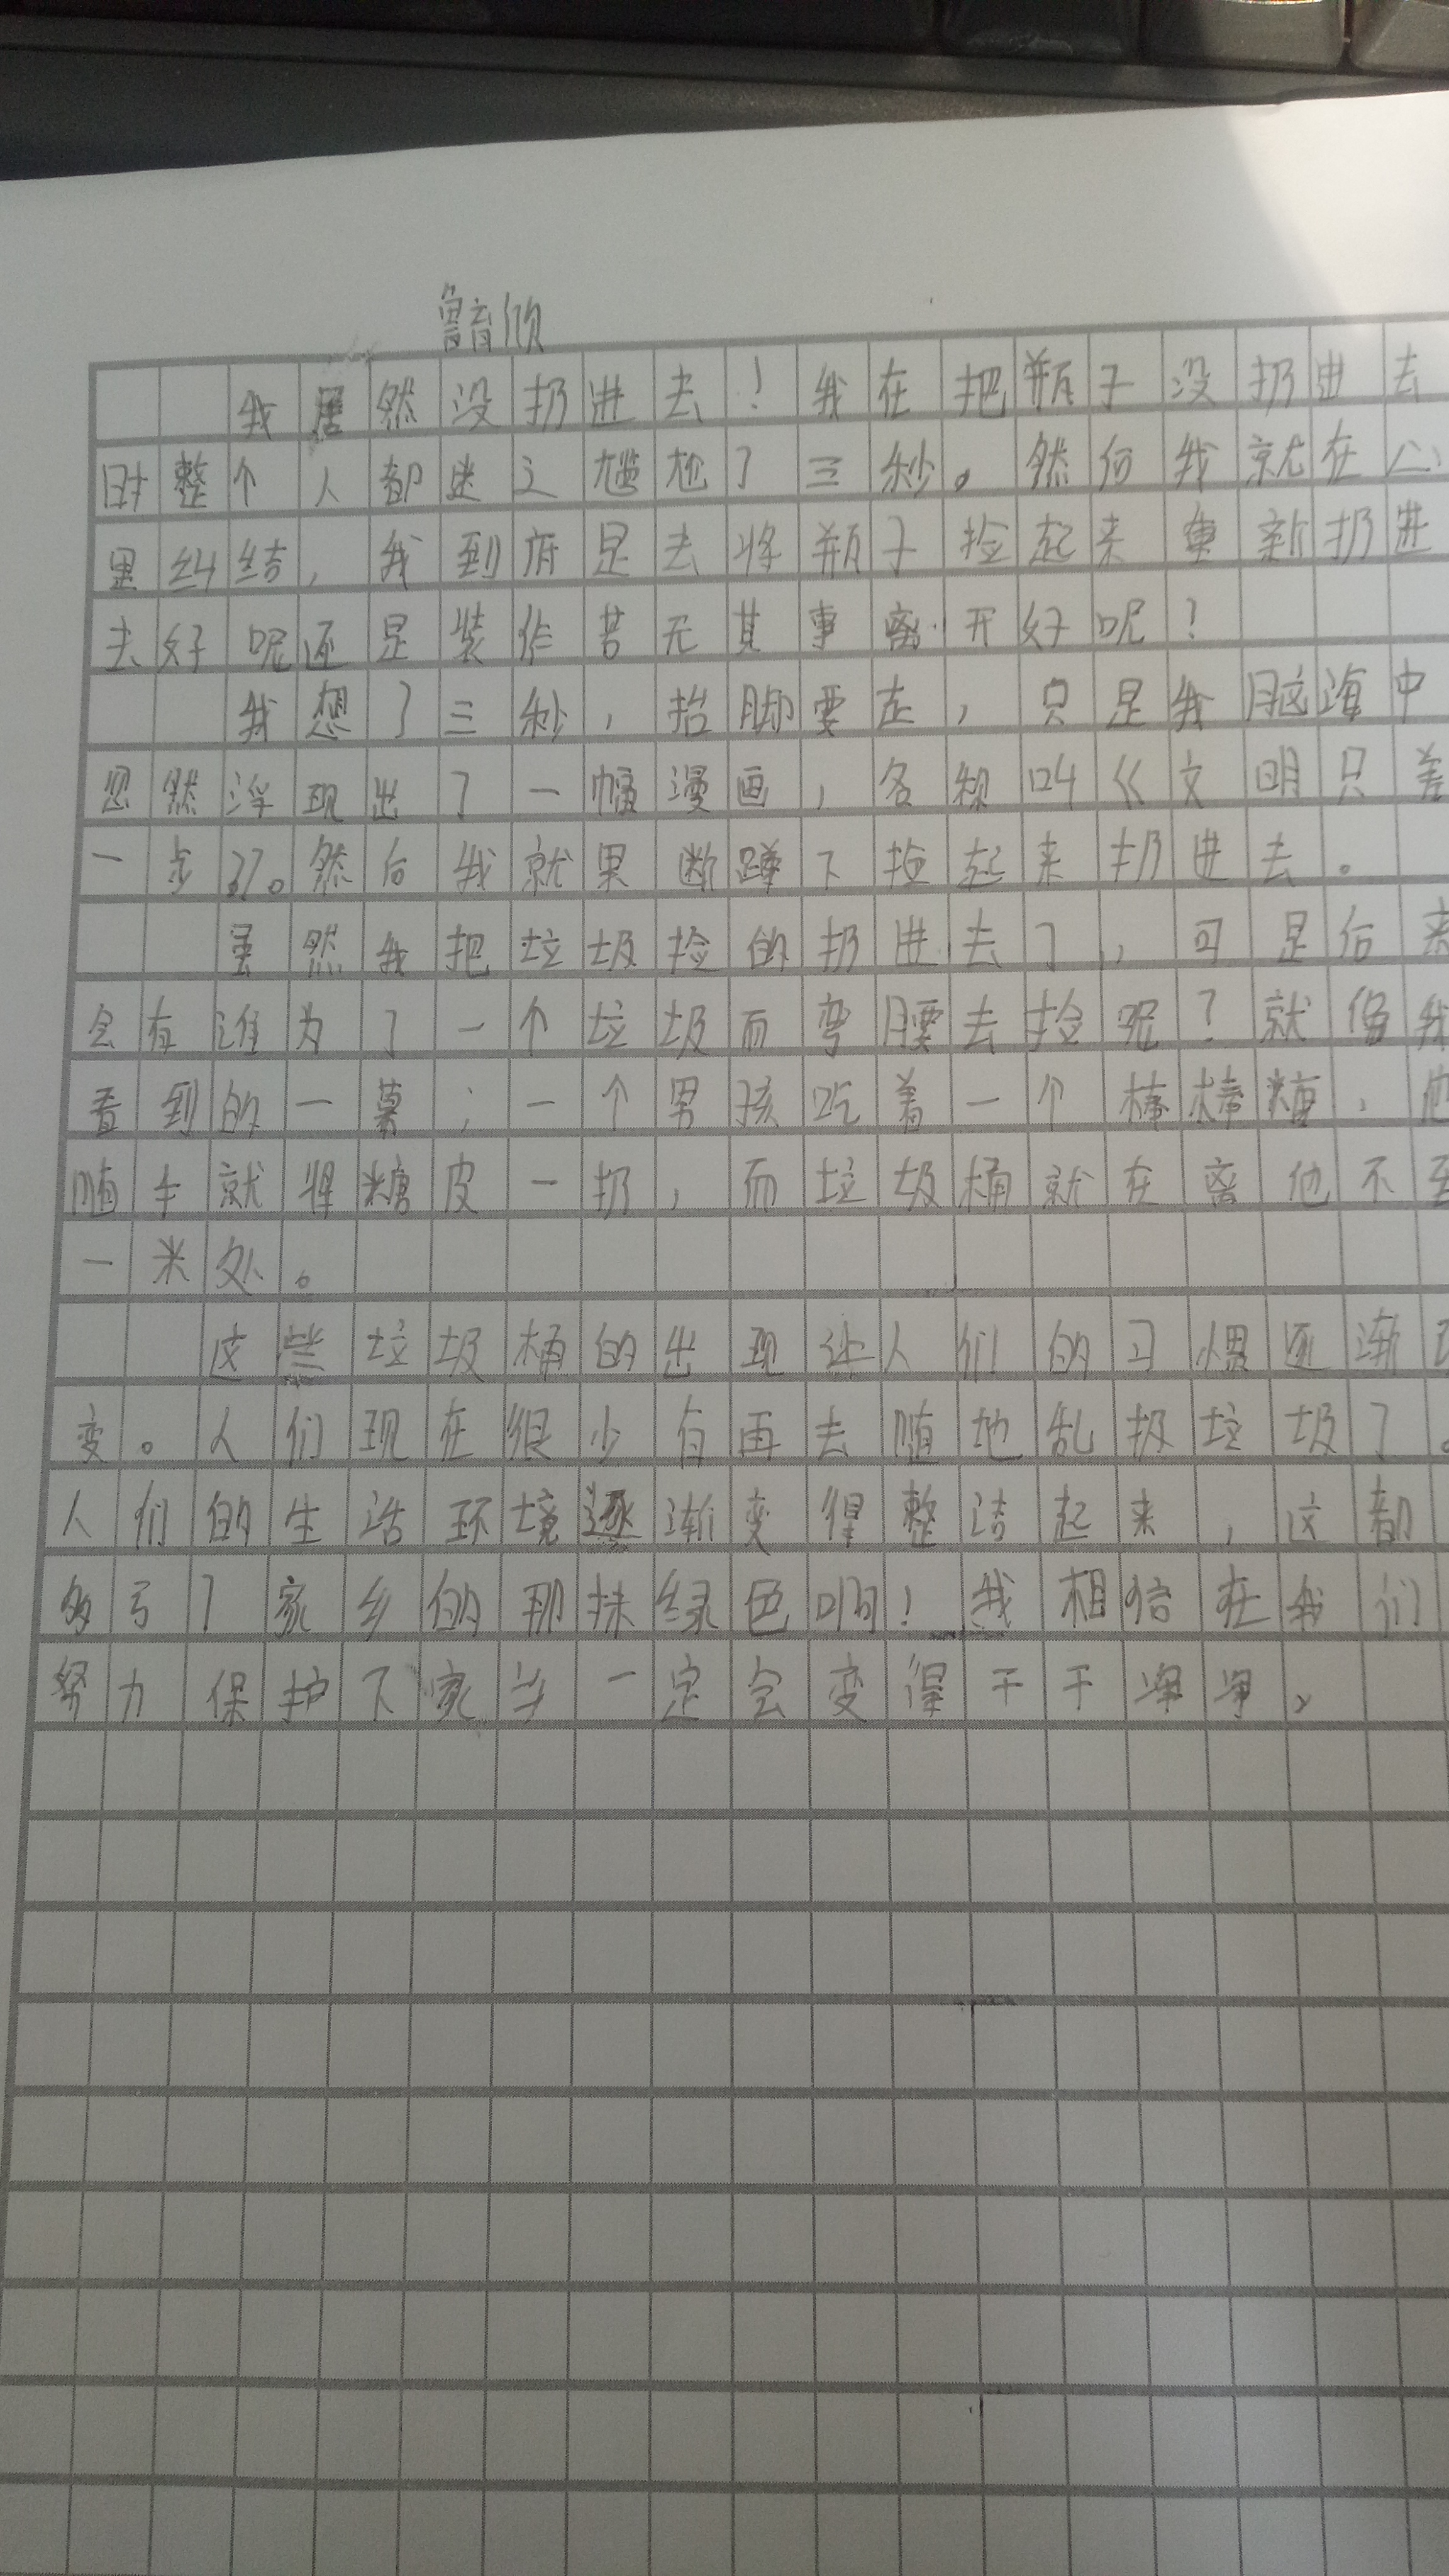 鲁育欣
我居然没扔进去！我在把瓶子没扔进去
时整个人都迷之尴尬了三秒。然何我就在心
里纠结，我到府是去将瓶子捡起来重新扔进
去好呢还是装作若无其事离开好呢？
我想了三秒，抬脚要走，只是我脑海中
忽然浮现出了一幅漫画，名称叫《文明只差
一步》。然后我就果断蹲下捡起来扔进去。
虽然我把垃圾捡的扔进去了，可是后来
会有谁为了一个垃圾而弯腰去捡呢？就像我
看到的一幕：一个男孩吃着一个棒棒糖，他
随手就将糖皮一扔，而垃圾桶就在离他不至
一米处。
这些垃圾桶的出现让人们的习惯逐渐
变。人们现在很少有再去随地乱扔垃圾了。
人们的生活环境逐渐变得整洁起来，这都
多亏了家乡的那抹绿色啊！我相信在我们
努力保护下家乡一定会变得干干净净。